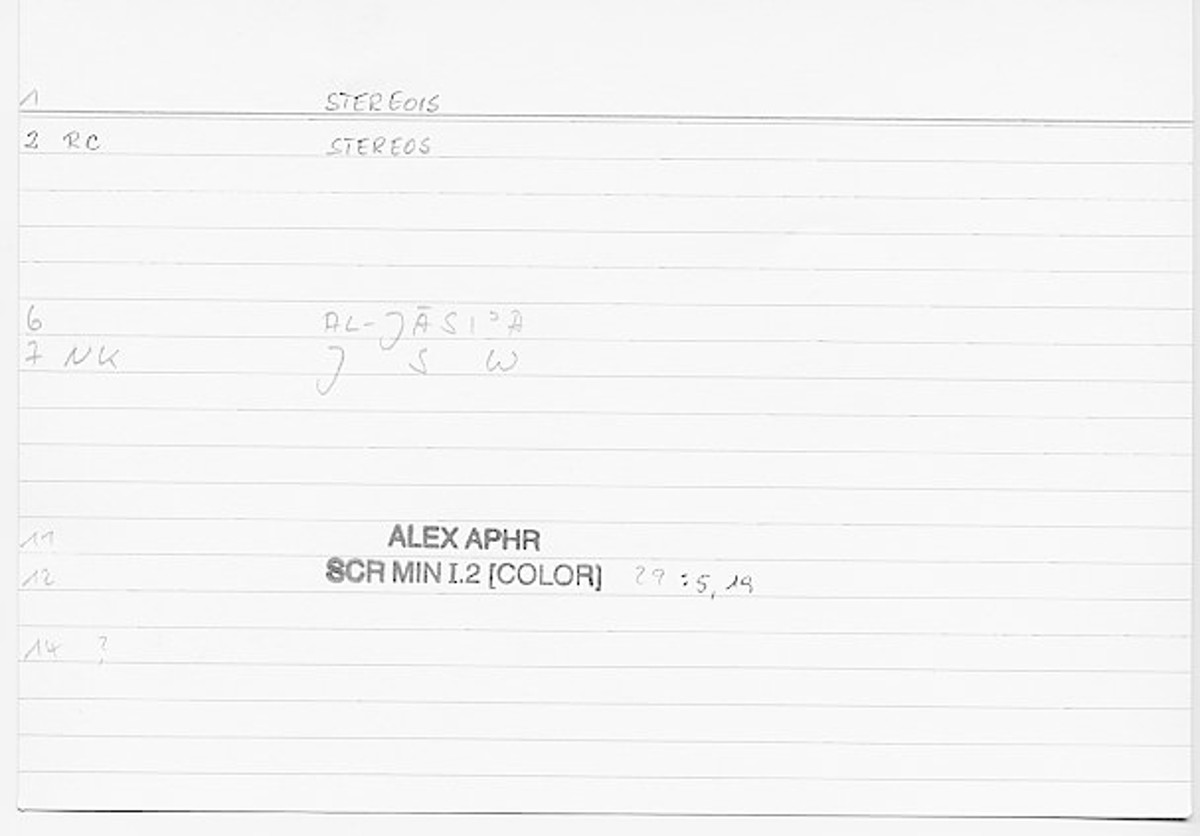 1 STEREOIS
2 RC STEREOS
6 AL-JĀSIʾA
7 NK J S W
11 ALEX APHR
12 SCR MIN I.2 [COLOR] 29 : 5, 19
14 ?